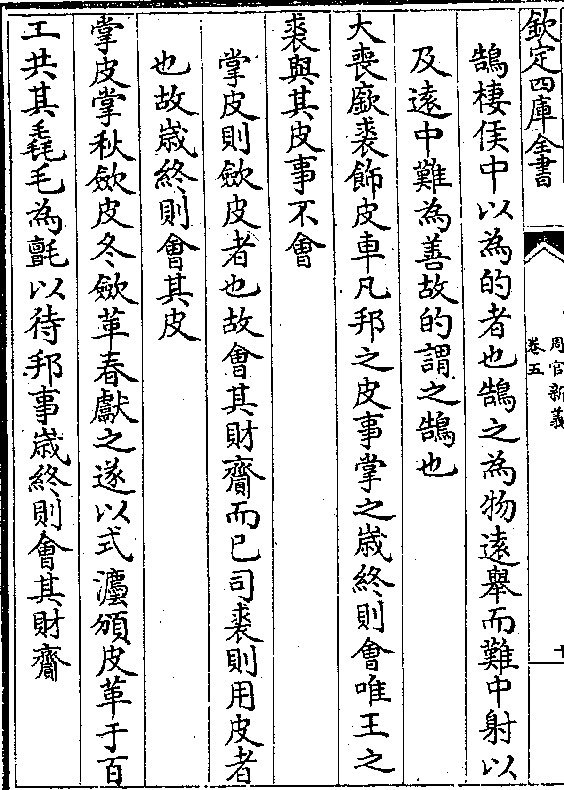 欽定四庫全書
周官新義
卷五
鵠棲侯中以為的者也鵠之為物遠舉而難中射以
及遠中難為善故的謂之鵠也
大喪廞裘飾皮車凡邦之皮事掌之歲終則會唯王之
裘與其皮事不會
掌皮則斂皮者也故會其財齎而已司裘則用皮者
也故歲終則會其皮
掌皮掌秋斂皮冬斂革春獻之遂以式灋頒皮革于百
工共其毳毛為氈以待邦事歲終則會其財齎